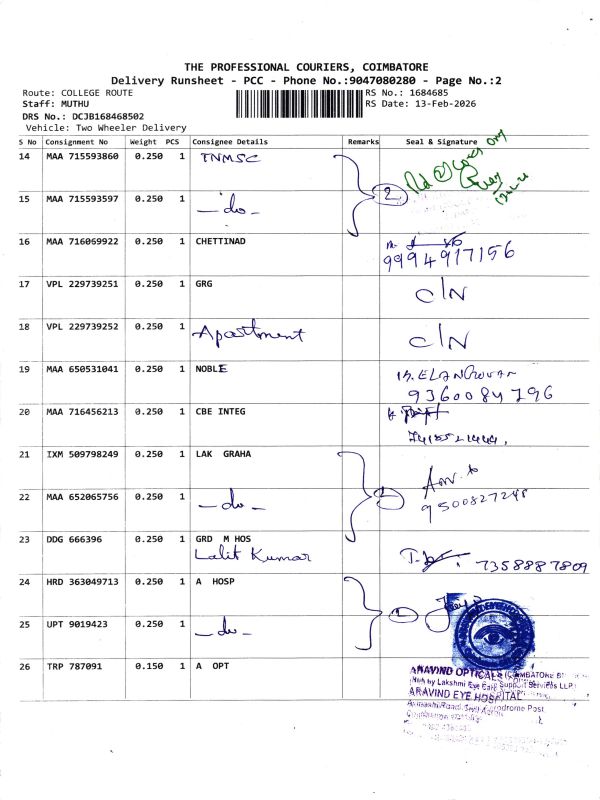 THE PROFESSIONAL COURIERS, COIMBATORE
Delivery Runsheet - PCC - Phone No.:9047080280 - Page No.:2
Route: COLLEGE ROUTE
RS No.: 1684685
Staff: MUTHU
RS Date: 13-Feb-2026
DRS No.: DCJB168468502
Vehicle: Two Wheeler Delivery
S No Consignment No Weight PCS Consignee Details Remarks Seal & Signature
14 MAA 715593860 0.250 1 TNMSC
2
15 MAA 715593597 0.250 1 -do-
16 MAA 716069922 0.250 1 CHETTINAD
9994917156
17 VPL 229739251 0.250 1 GRG C/N
18 VPL 229739252 0.250 1 Apartment C/N
19 MAA 650531041 0.250 1 NOBLE
9360084796
20 MAA 716456213 0.250 1 CBE INTEG
21 IXM 509798249 0.250 1 LAK GRAHA
22 MAA 652065756 0.250 1 -do-
9500827248
23 DDG 666396 0.250 1 GRD M HOS
Lalit Kumar
7358887809
24 HRD 363049713 0.250 1 A HOSP
25 UPT 9019423 0.250 1 -do-
26 TRP 787091 0.150 1 A OPT
ARAVIND OPTICALS (COIMBATORE
by Lakshmi Eye Care Support Services LLP)
ARAVIND EYE HOSPITAL
Avinashi Road, Aerodrome Post